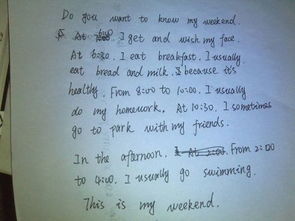 Do you want to know my weekend.
At 6:00 I get and wish my face.
At 6:30. I eat breakfast. I usually
eat bread and milk. because it's
healthy. From 8:00 to 10:00. I usually
do my homework. At 10:30. I somotimas
go to park with my friends.
In the afternoon. From 2:00
to 4:00. I usually go swimming.
This is my weekend.